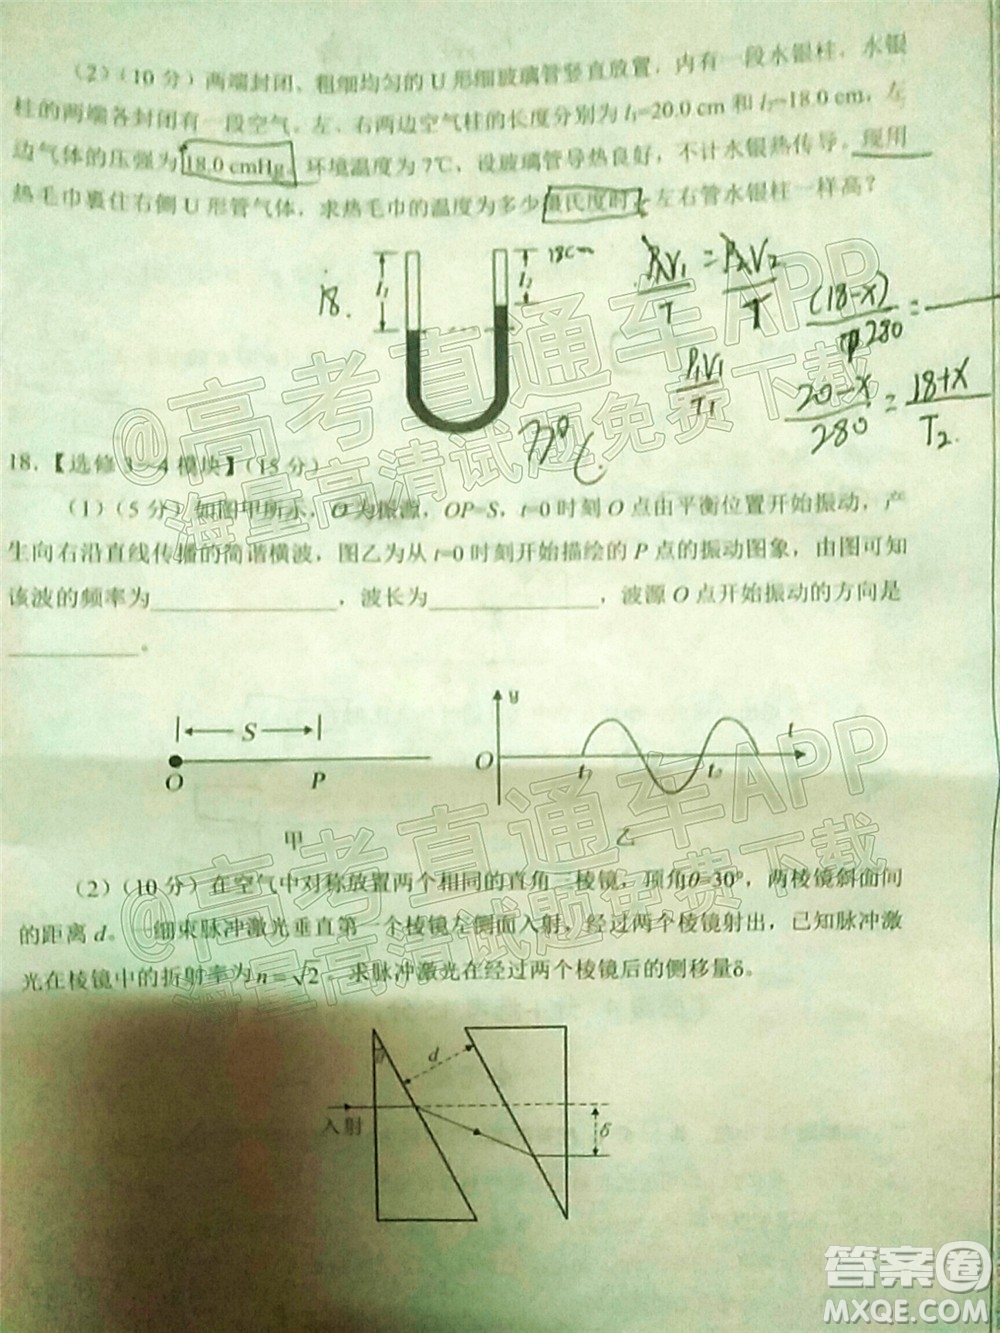 (2)(10分)两端封闭、粗细均匀的U形细玻璃管竖直放置,内有一段水银柱,水银
柱的两端各封闭有一段空气。左、右两边空气柱的长度分别为l₁=20.0 cm 和 l₂=18.0 cm,左
边气体的压强为18.0 cmHg。环境温度为7℃,设玻璃管导热良好,不计水银热传导。现用
热毛巾裹住右侧U形管气体,求热毛巾的温度为多少摄氏度时,左右管水银柱一样高?
l₁
l₂
18cm
18.
P₁V₁/T = P₂V₂/T
(18-x)/280 =
P₁V₁/T₁
20-x/280 = 18+x/T₂
77℃
18.【选修3-4模块】(15分)
(1)(5分)如图甲所示,O为振源,OP=S,t=0时刻O点由平衡位置开始振动,产
生向右沿直线传播的简谐横波,图乙为从t=0时刻开始描绘的P点的振动图象,由图可知
该波的频率为________,波长为________,波源O点开始振动的方向是
________。
S
O P
甲
y
O t₁ t₂ t
乙
(2)(10分)在空气中对称放置两个相同的直角三棱镜,顶角θ=30°,两棱镜斜面间
的距离d。一细束脉冲激光垂直第一个棱镜左侧面入射,经过两个棱镜射出,已知脉冲激
光在棱镜中的折射率为n=√2,求脉冲激光在经过两个棱镜后的侧移量δ。
θ
d
入射
δ
@高考直通车APP
海量高清试题免费下载
@高考直通车APP
海量高清试题免费下载
答案圈
MXQE.COM